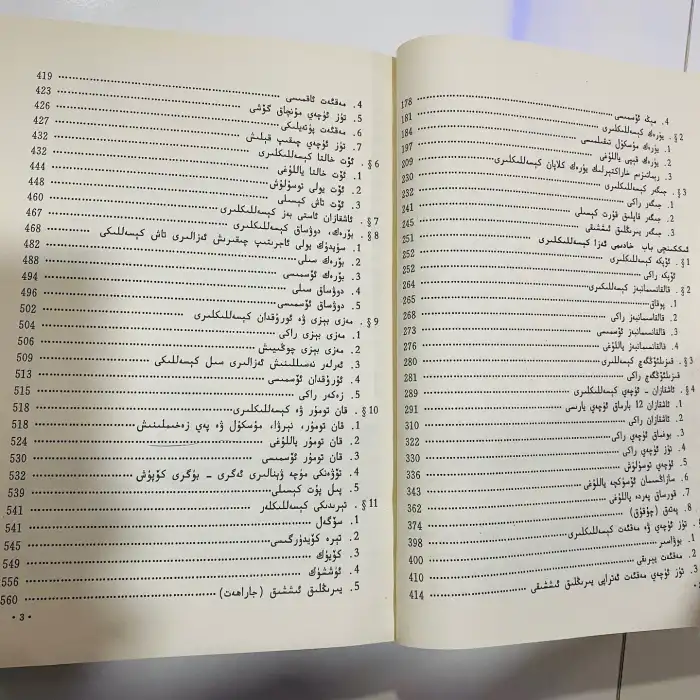 4. مېڭە ئۆسمىسى 178
§ 2. يۈرەك كېسەللىكلىرى 181
1. يۈرەك مۇسكۇل تىقىلمىسى 184
2. يۈرەك قېپى ياللۇغى 197
3. رېماتىزىم خاراكتېرلىك يۈرەك كلاپان كېسەللىكلىرى 209
§ 3. جىگەر كېسەللىكلىرى 230
1. جىگەر راكى 232
2. جىگەر قاپلىق قۇرت كېسىلى 241
3. جىگەر يىرىڭلىق ئىششىقى 245
ئىككىنچى باب خادىمىي ئەزا كېسەللىكلىرى 251
§ 1. ئۆپكە كېسەللىكلىرى 252
ئۆپكە راكى 252
§ 2. قالقانسىمانبەز كېسەللىكلىرى 264
1. پوقاق 265
2. قالقانسىمانبەز راكى 268
3. قالقانسىمانبەز ئۆسمىسى 273
4. قالقانسىمانبەز ياللۇغى 276
§ 3. قىزىلئۆڭگەچ كېسەللىكلىرى 280
قىزىلئۆڭگەچ راكى 281
§ 4. ئاشقازان - ئۈچەي كېسەللىكلىرى 289
1. ئاشقازان 12 بارماق ئۈچەي يارىسى 291
2. ئاشقازان راكى 310
3. يوغىناق ئۈچەي راكى 322
4. تۈز ئۈچەي راكى 330
5. ئۈچەي توسۇلۇش 336
6. سازاڭسىمان ئۆسۈكچە ياللۇغى 343
7. قورساق پەردە ياللۇغى 362
8. پەتىق (چۇقۇق) 374
تۈز ئۈچەي ۋە مەقئەت كېسەللىكلىرى 398
1. بوۋاسىر 400
2. مەقئەت يىرىقى 410
3. تۈز ئۈچەي مەقئەت ئەتراپى يىرىڭلىق ئىششىقى 414
4. مەقئەت ئاقمىسى 419
5. تۈز ئۈچەي مۇنچاق گۆشى 423
6. مەقئەت پۈتەيلىكى 426
7. تۈز ئۈچەي چىقىپ قېلىش 427
§ 6. ئۆت خالتا كېسەللىكلىرى 432
1. ئۆت خالتا ياللۇغى 432
2. ئۆت يولى توسۇلۇش 444
3. ئۆت تاش كېسىلى 448
§ 7. ئاشقازان ئاستى بەز كېسەللىكلىرى 460
§ 8. بۆرەك، دوۋساق كېسەللىكلىرى 467
1. سۈيدۈك يولى ئاجرىتىپ چىقىرىش ئەزالىرى تاش كېسەللىكى 468
2. بۆرەك سىلى 482
3. بۆرەك ئۆسمىسى 488
4. دوۋساق سىلى 494
5. دوۋساق ئۆسمىسى 496
§ 9. مەزى بېزى ۋە ئورۇقدان كېسەللىكلىرى 502
1. مەزى بېزى راكى 504
2. مەزى بېزى چوڭىيىش 506
3. ئەرلەر نەسىللىنىش ئەزالىرى سىل كېسەللىكى 509
4. ئۇرۇقدان ئۆسمىسى 513
5. زەكەر راكى 515
§ 10. قان تومۇر ۋە كېسەللىكلىرى 518
1. قان تومۇر، نېرۋا، مۇسكۇل ۋە پەي زەخىملىنىش 518
2. قان تومۇر ياللۇغى 524
3. قان تومۇر ئۆسمىسى 530
4. تۆۋەنكى مۈچە ۋېنالىرى ئەگرى - بۈگرى كۆپۈش 532
5. پىل پۇت كېسىلى 539
§ 11. تېرىدىكى كېسەللىكلەر 541
1. سۆگەل 541
2. تېرە كۆيدۈرگىسى 545
3. كۆيۈك 549
4. ئۈششۈك 556
5. يىرىڭلىق ئىششىق (جاراھەت) 560
• 3 •